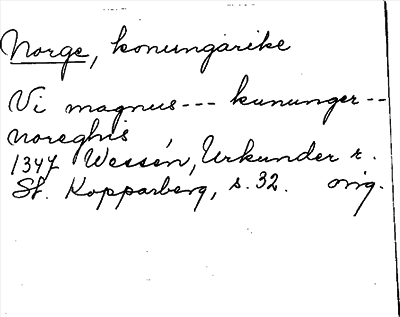 Norge, konungarike
Vi magnus --- kununger --
noreghis,
1347 Wessén, Urkunder r.
St. Kopparberg, s. 32. orig.